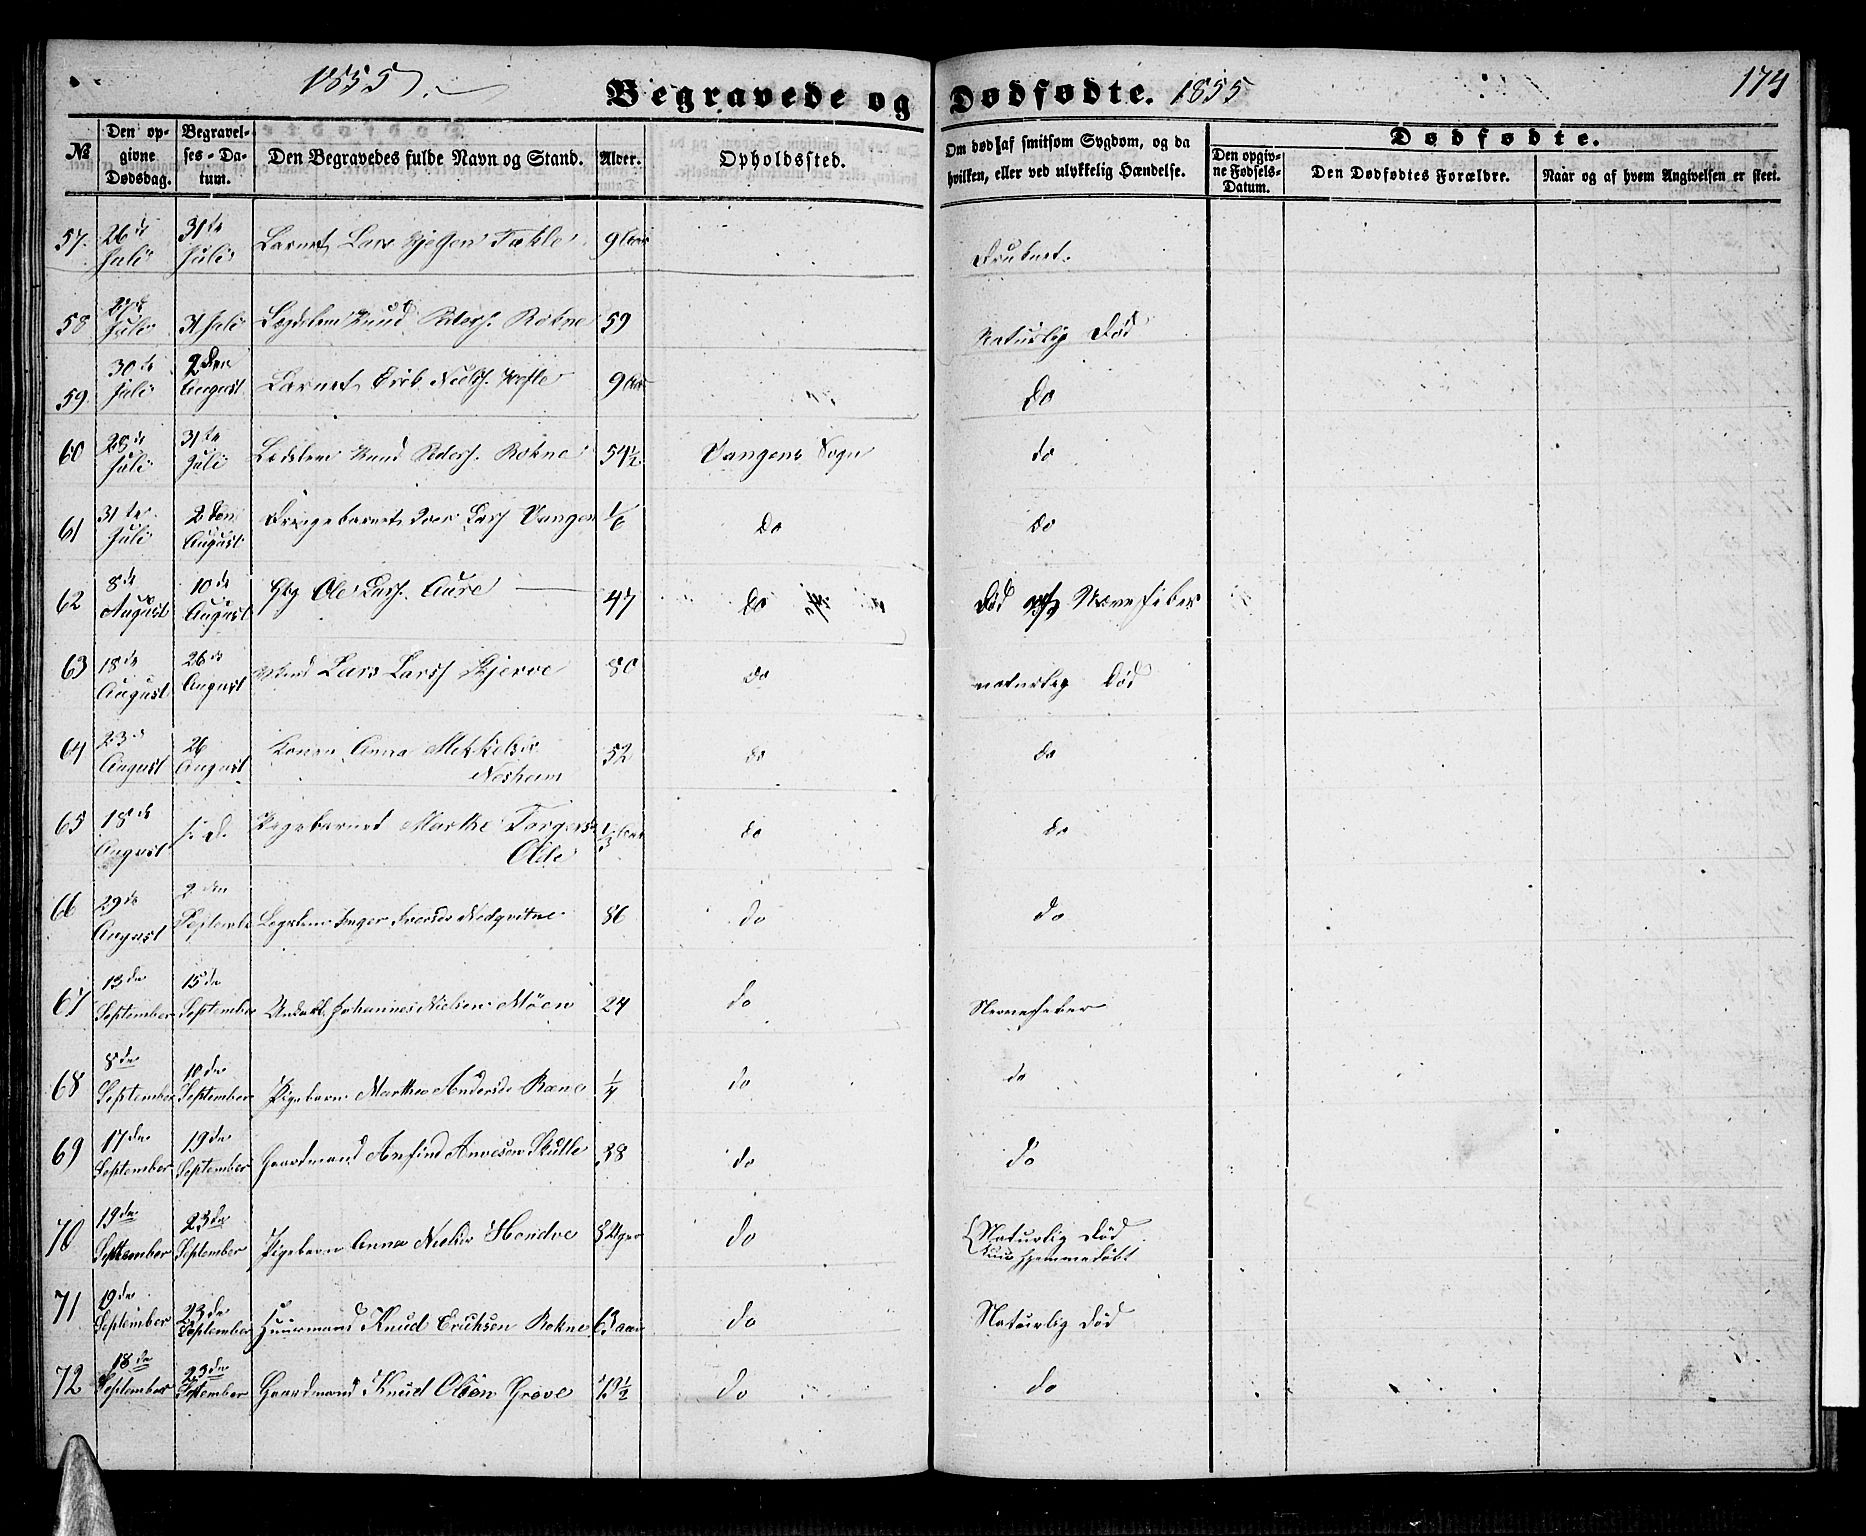 1855. Begravede og Dødfødte. 1855 174
№ Den opgivne Dødsdag. Begravelses-Datum. Den Begravedes fulde Navn og Stand. Alder. Opholdssted. Om død af smitsom Sygdom, og da hvilken, eller ved ulykkelig Hændelse. Dødfødte.
Den opgivne Fødsels-Datum. Den Dødfødtes Forældre. Naar og af hvem Angivelsen er skeet.
57. 26de Juli 31te Juli Barnet Lars 9 Aar Druknet.
58 Juli 31 Juli Lægdslem Knud Peders. Rokne 59 Naturlig Død
59 30te Juli 2den August Barnet Erik Niels. 9 Aar Do
60 28de Juli 31te Juli Knud Peders. Rokne 54½ Vangens Sogn do
61 31te Juli 2den August Drengebarnet Iver Lars. Vangen 1/6 Do do
62 8de August 10de August Gbg Ole Lars. Aure 47 Do Død af Nervefeber
63 18de August 26de August Lars Larss Gjerve 80 do naturlig Død
64 23de August 26 August Konen Anna Mikkelsdr
Nesheim 52 do do
65 18de August s. D. Pigebarnet Marthe Torgersdr
Olde 1/3 Aar do do
66 29de August 2den Septembr Inger Iversdr Nedqvitne 86 do do
67 13de September 15de September Ungkl. Johannes Nielsen Möen 24 do Nervefeber
68 8de September 10de September Pigebarn Martha Andersdr Ræne ¼ do do
69 17de September 19de September Gaardmand Anfind Arvesen Skulle 38 do do
70 19de September 23de September Pigebarn Anna Nielsdr Hondve 8 Dage do Naturlig Død
hjemmedøbt
71 19de September 23de September Huusmand Knud Eriksen Rokne 63 aar do Naturlig Død
72 18de September 23de September Gaardmand Knud Olsen Grove do do